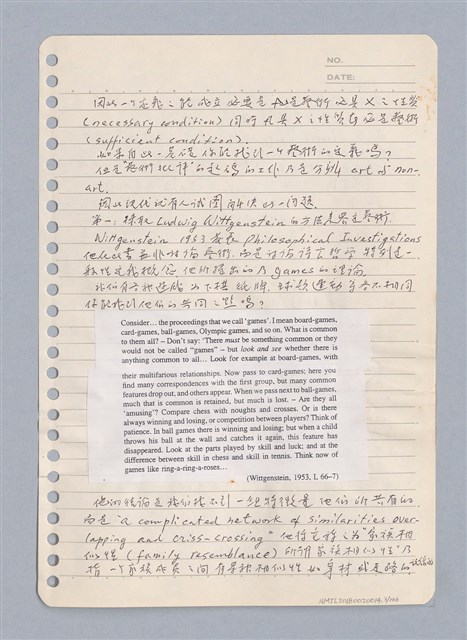 NO.
DATE:
因此一个定義之能成立必要是 A 是藝術必具 X 之性質
(necessary condition) 同時凡具 X 之性質者必是藝術
(sufficient condition).
如果自此一 是否你能找到一个藝術的定義嗎?
但是"藝術批評"的起碼的工作乃是分辨 art or non-
art.
因此現代就有人試圖解決此一问题.
第一, 採取 Ludwig Wittgenstein 的方法来界定藝術.
Wittgenstein 1953 發表 Philosophical Investigations
他此書並非討論藝術, 而是討論語言哲学 特别是一
般性定義概念 他所提出的乃 games 的理論.
我们有各式遊戲 如下棋 紙牌, 球類運動 等各不相同
你能找到他们的共同之點嗎?
Consider… the proceedings that we call 'games'. I mean board-games,
card-games, ball-games, Olympic games, and so on. What is common
to them all? – Don't say: 'There must be something common or they
would not be called "games" – but look and see whether there is
anything common to all… Look for example at board-games, with
their multifarious relationships. Now pass to card-games; here you
find many correspondences with the first group, but many common
features drop out, and others appear. When we pass next to ball-games,
much that is common is retained, but much is lost. – Are they all
'amusing'? Compare chess with noughts and crosses. Or is there
always winning and losing, or competition between players? Think of
patience. In ball games there is winning and losing; but when a child
throws his ball at the wall and catches it again, this feature has
disappeared. Look at the parts played by skill and luck; and at the
difference between skill in chess and skill in tennis. Think now of
games like ring-a-ring-a-roses…
(Wittgenstein, 1953, I, 66–7)
他的結論是我们找不到一组特徵是他们所共有的
而是 "a complicated network of similarities over-
lapping and criss-crossing" 他稱之為"家族相
似性 (family resemblance) 所謂家族相似性乃
指一个家族成員之间有某種相似性 如身材或走路的